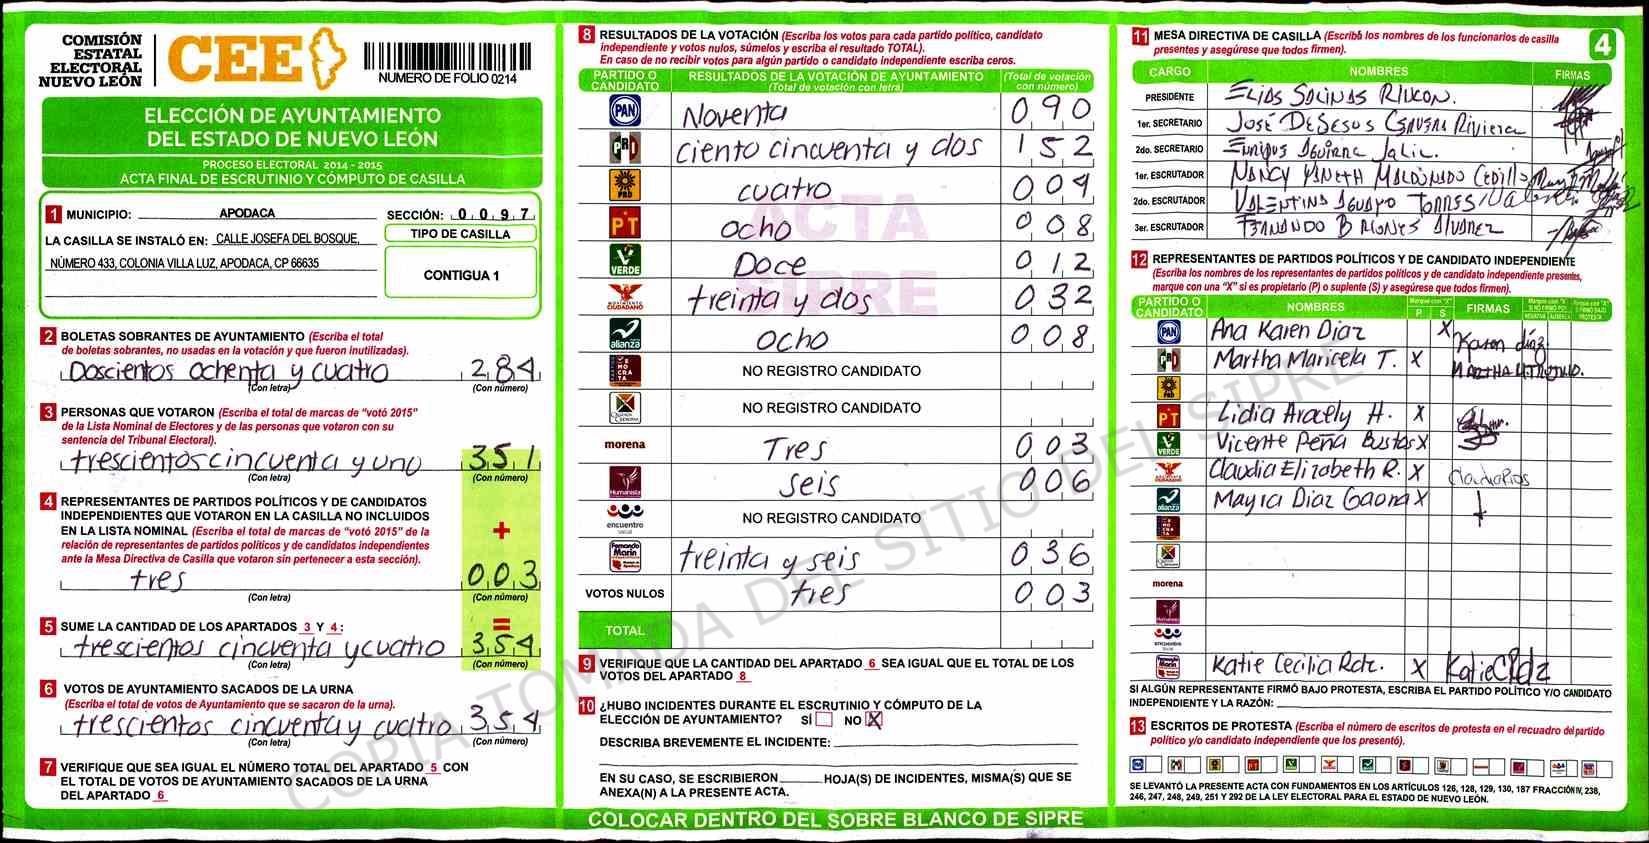 COMISIÓN
ESTATAL
ELECTORAL
NUEVO LEÓN
CEE
NUMERO DE FOLIO 0214
ELECCIÓN DE AYUNTAMIENTO
DEL ESTADO DE NUEVO LEÓN
PROCESO ELECTORAL 2014 - 2015
ACTA FINAL DE ESCRUTINIO Y CÓMPUTO DE CASILLA
1 MUNICIPIO: APODACA SECCIÓN: 0 0 9 7
LA CASILLA SE INSTALÓ EN: CALLE JOSEFA DEL BOSQUE,
NÚMERO 433, COLONIA VILLA LUZ, APODACA, CP 66635
TIPO DE CASILLA
CONTIGUA 1
2 BOLETAS SOBRANTES DE AYUNTAMIENTO (Escriba el total
de boletas sobrantes, no usadas en la votación y que fueron inutilizadas).
Doscientos ochenta y cuatro 284
(Con letra) (Con número)
3 PERSONAS QUE VOTARON (Escriba el total de marcas de "votó 2015"
de la Lista Nominal de Electores y de las personas que votaron con su
sentencia del Tribunal Electoral).
trescientos cincuenta y uno 351
(Con letra) (Con número)
4 REPRESENTANTES DE PARTIDOS POLÍTICOS Y DE CANDIDATOS
INDEPENDIENTES QUE VOTARON EN LA CASILLA NO INCLUIDOS
EN LA LISTA NOMINAL (Escriba el total de marcas de "votó 2015" de la
relación de representantes de partidos políticos y de candidatos independientes
ante la Mesa Directiva de Casilla que votaron sin pertenecer a esta sección).
+
tres 003
(Con letra) (Con número)
=
5 SUME LA CANTIDAD DE LOS APARTADOS 3 Y 4:
trescientos cincuenta y cuatro 354
(Con letra) (Con número)
6 VOTOS DE AYUNTAMIENTO SACADOS DE LA URNA
(Escriba el total de votos de Ayuntamiento que se sacaron de la urna).
trescientos cincuenta y cuatro 354
(Con letra) (Con número)
7 VERIFIQUE QUE SEA IGUAL EL NÚMERO TOTAL DEL APARTADO 5 CON
EL TOTAL DE VOTOS DE AYUNTAMIENTO SACADOS DE LA URNA
DEL APARTADO 6
8 RESULTADOS DE LA VOTACIÓN (Escriba los votos para cada partido político, candidato
independiente y votos nulos, súmelos y escriba el resultado TOTAL).
En caso de no recibir votos para algún partido o candidato independiente escriba ceros.
PARTIDO O CANDIDATO RESULTADOS DE LA VOTACIÓN DE AYUNTAMIENTO (Total de votación con letra) (Total de votación con número)
PAN Noventa 090
PRI ciento cincuenta y dos 152
PRD cuatro 004
PT ocho 008
VERDE Doce 012
MOVIMIENTO CIUDADANO treinta y dos 032
alianza ocho 008
DEMOCRATA NO REGISTRO CANDIDATO
NO REGISTRO CANDIDATO
morena Tres 003
Humanista seis 006
encuentro social NO REGISTRO CANDIDATO
Fernando Marín treinta y seis 036
VOTOS NULOS tres 003
TOTAL
ACTA
SIPRE
9 VERIFIQUE QUE LA CANTIDAD DEL APARTADO 6 SEA IGUAL QUE EL TOTAL DE LOS
VOTOS DEL APARTADO 8
10 ¿HUBO INCIDENTES DURANTE EL ESCRUTINIO Y CÓMPUTO DE LA
ELECCIÓN DE AYUNTAMIENTO? SÍ NO X
DESCRIBA BREVEMENTE EL INCIDENTE:
EN SU CASO, SE ESCRIBIERON HOJA(S) DE INCIDENTES, MISMA(S) QUE SE
ANEXA(N) A LA PRESENTE ACTA.
COLOCAR DENTRO DEL SOBRE BLANCO DE SIPRE
11 MESA DIRECTIVA DE CASILLA (Escriba los nombres de los funcionarios de casilla
presentes y asegúrese que todos firmen).
4
CARGO NOMBRES FIRMAS
PRESIDENTE Elias Salinas Rincon.
1er. SECRETARIO José De Jesus Cervera Riviera
2do. SECRETARIO Enrique Aguirre
1er. ESCRUTADOR Nancy Yaneth Maldonado Cedillo
2do. ESCRUTADOR Valentina Aguayo Torres
3er. ESCRUTADOR Fernando Briones Alvarez
12 REPRESENTANTES DE PARTIDOS POLÍTICOS Y DE CANDIDATO INDEPENDIENTE
(Escriba los nombres de los representantes de partidos políticos y de candidato independiente presentes,
marque con una "X" si es propietario (P) o suplente (S) y asegúrese que todos firmen).
PARTIDO O CANDIDATO NOMBRES Marque con "X" P S FIRMAS
PAN Ana Karen Diaz X Karen díaz
PRI Martha Maricela T. X
PRD
PT Lidia Aracely H. X
VERDE Vicente Peña Bustos X
Claudia Elizabeth R. X Claudia Rios
alianza Mayra Diaz Gaona X
morena
Humanista
encuentro
Katie Cecilia Rdz. X Katie C Rdz
SI ALGÚN REPRESENTANTE FIRMÓ BAJO PROTESTA, ESCRIBA EL PARTIDO POLÍTICO Y/O CANDIDATO
INDEPENDIENTE Y LA RAZÓN:
13 ESCRITOS DE PROTESTA (Escriba el número de escritos de protesta en el recuadro del partido
político y/o candidato independiente que los presentó).
SE LEVANTÓ LA PRESENTE ACTA CON FUNDAMENTOS EN LOS ARTÍCULOS 126, 128, 129, 130, 187 FRACCIÓN IV, 238,
246, 247, 248, 249, 251 Y 292 DE LA LEY ELECTORAL PARA EL ESTADO DE NUEVO LEÓN.
COPIA TOMADA DEL SITIO DEL SIPRE